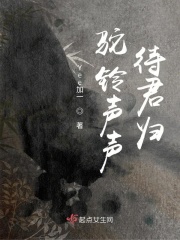 驼铃声声
待君归
Yee加一 ◎ 著
起点女生网